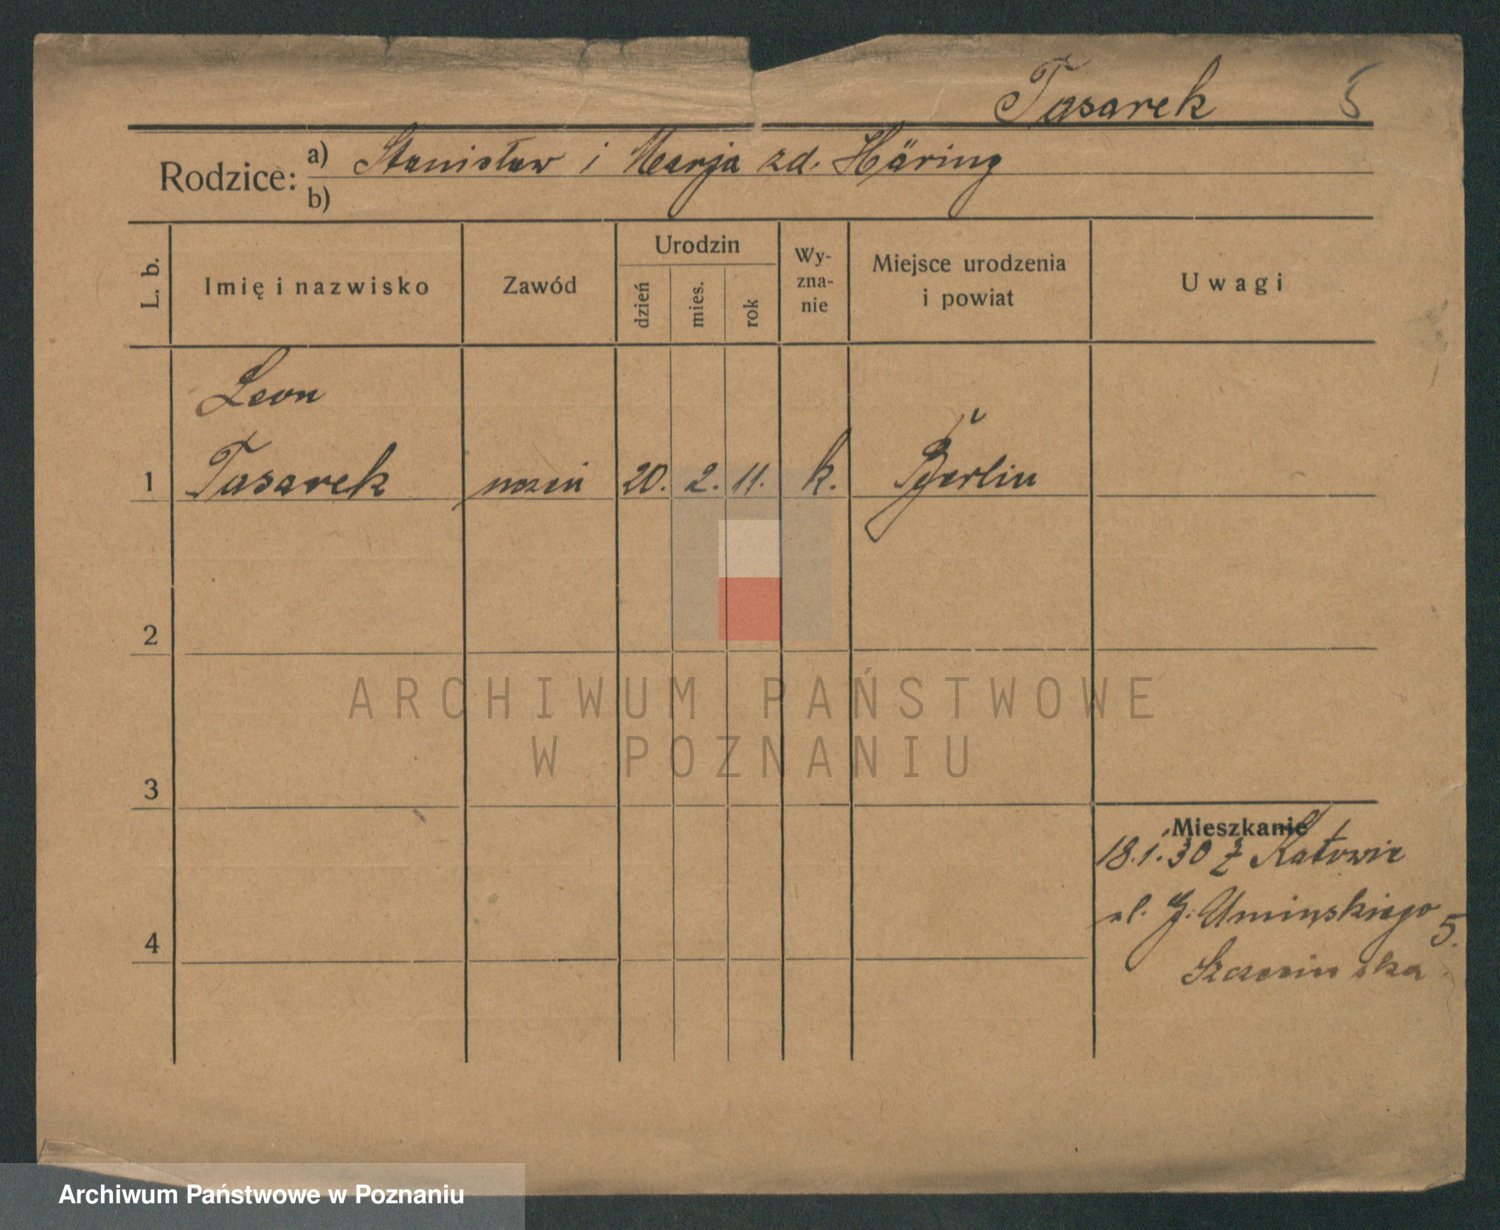 Tasarek 5
Rodzice: a) Stanisław i Marja zd. Häring
b)
L. b. Imię i nazwisko Zawód Urodzin dzień mies. rok Wyznanie Miejsce urodzenia i powiat Uwagi
Leon
1 Tasarek uczeń 20. 2. 11. k. Berlin
2
ARCHIWUM PAŃSTWOWE
W POZNANIU
3
Mieszkanie
18.1.30 z Katowic
ul. J. Umińskiego 5.
4
Archiwum Państwowe w Poznaniu